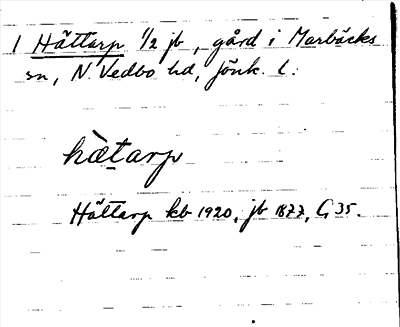 1 Hättarp 1/2 jb, gård i Marbäcks
sn, N. Vedbo hd, Jönk. l.
hà̱tarp
Hättarp kb 1920, jb 1877, G 35.